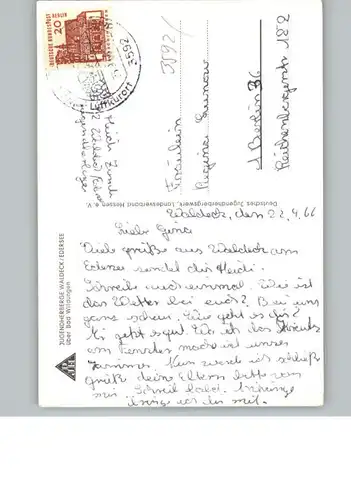 DEUTSCHE BUNDESPOST BERLIN
20
3592
kurort
3592/
Fräulein
Regina
1 Berlin 36
Reichenbergerstr. 182
Deutsches Jugendherbergswerk, Landesverband Hessen e. V.
JUGENDHERBERGE WALDECK/EDERSEE
über Bad Wildungen
DJH
Waldeck, den 22.4.66
Liebe Gina
Viele grüße aus Waldeck am
Edersee sendet dir Heidi.
Schreib auch einmal. Wie ist
das Wetter bei euch? Bei uns
ganz schön. Wie geht es dir?
Mir geht es gut. Wo ist das
am Fenster macht ist unser
Zimmer. Nun werde ich schließen
grüße deine Eltern bitte von
mir. Schreib bald.
ich dir mit.